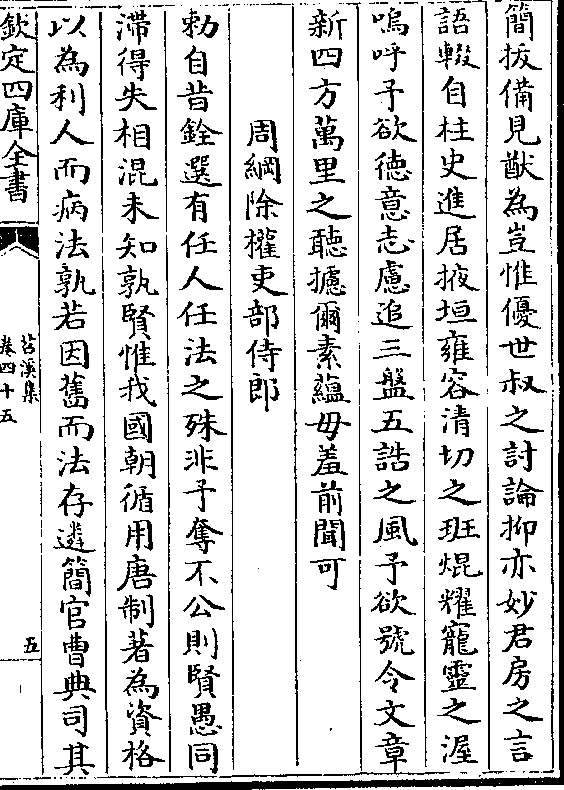 簡拔備見猷為豈惟優世叔之討論抑亦妙君房之言
語輟自柱史進居掖垣雍容清切之班焜耀寵靈之渥
嗚呼予欲徳意志慮追三盤五誥之風予欲號令文章
新四方萬里之聽攄爾素蘊毋羞前聞可
周綱除權吏部侍郎
勅自昔銓選有任人任法之殊非予奪不公則賢愚同
滯得失相混未知孰賢惟我國朝循用唐制著為資格
以為利人而病法孰若因舊而法存遴簡官曹典司其
欽定四庫全書
苕溪集
卷四十五
五